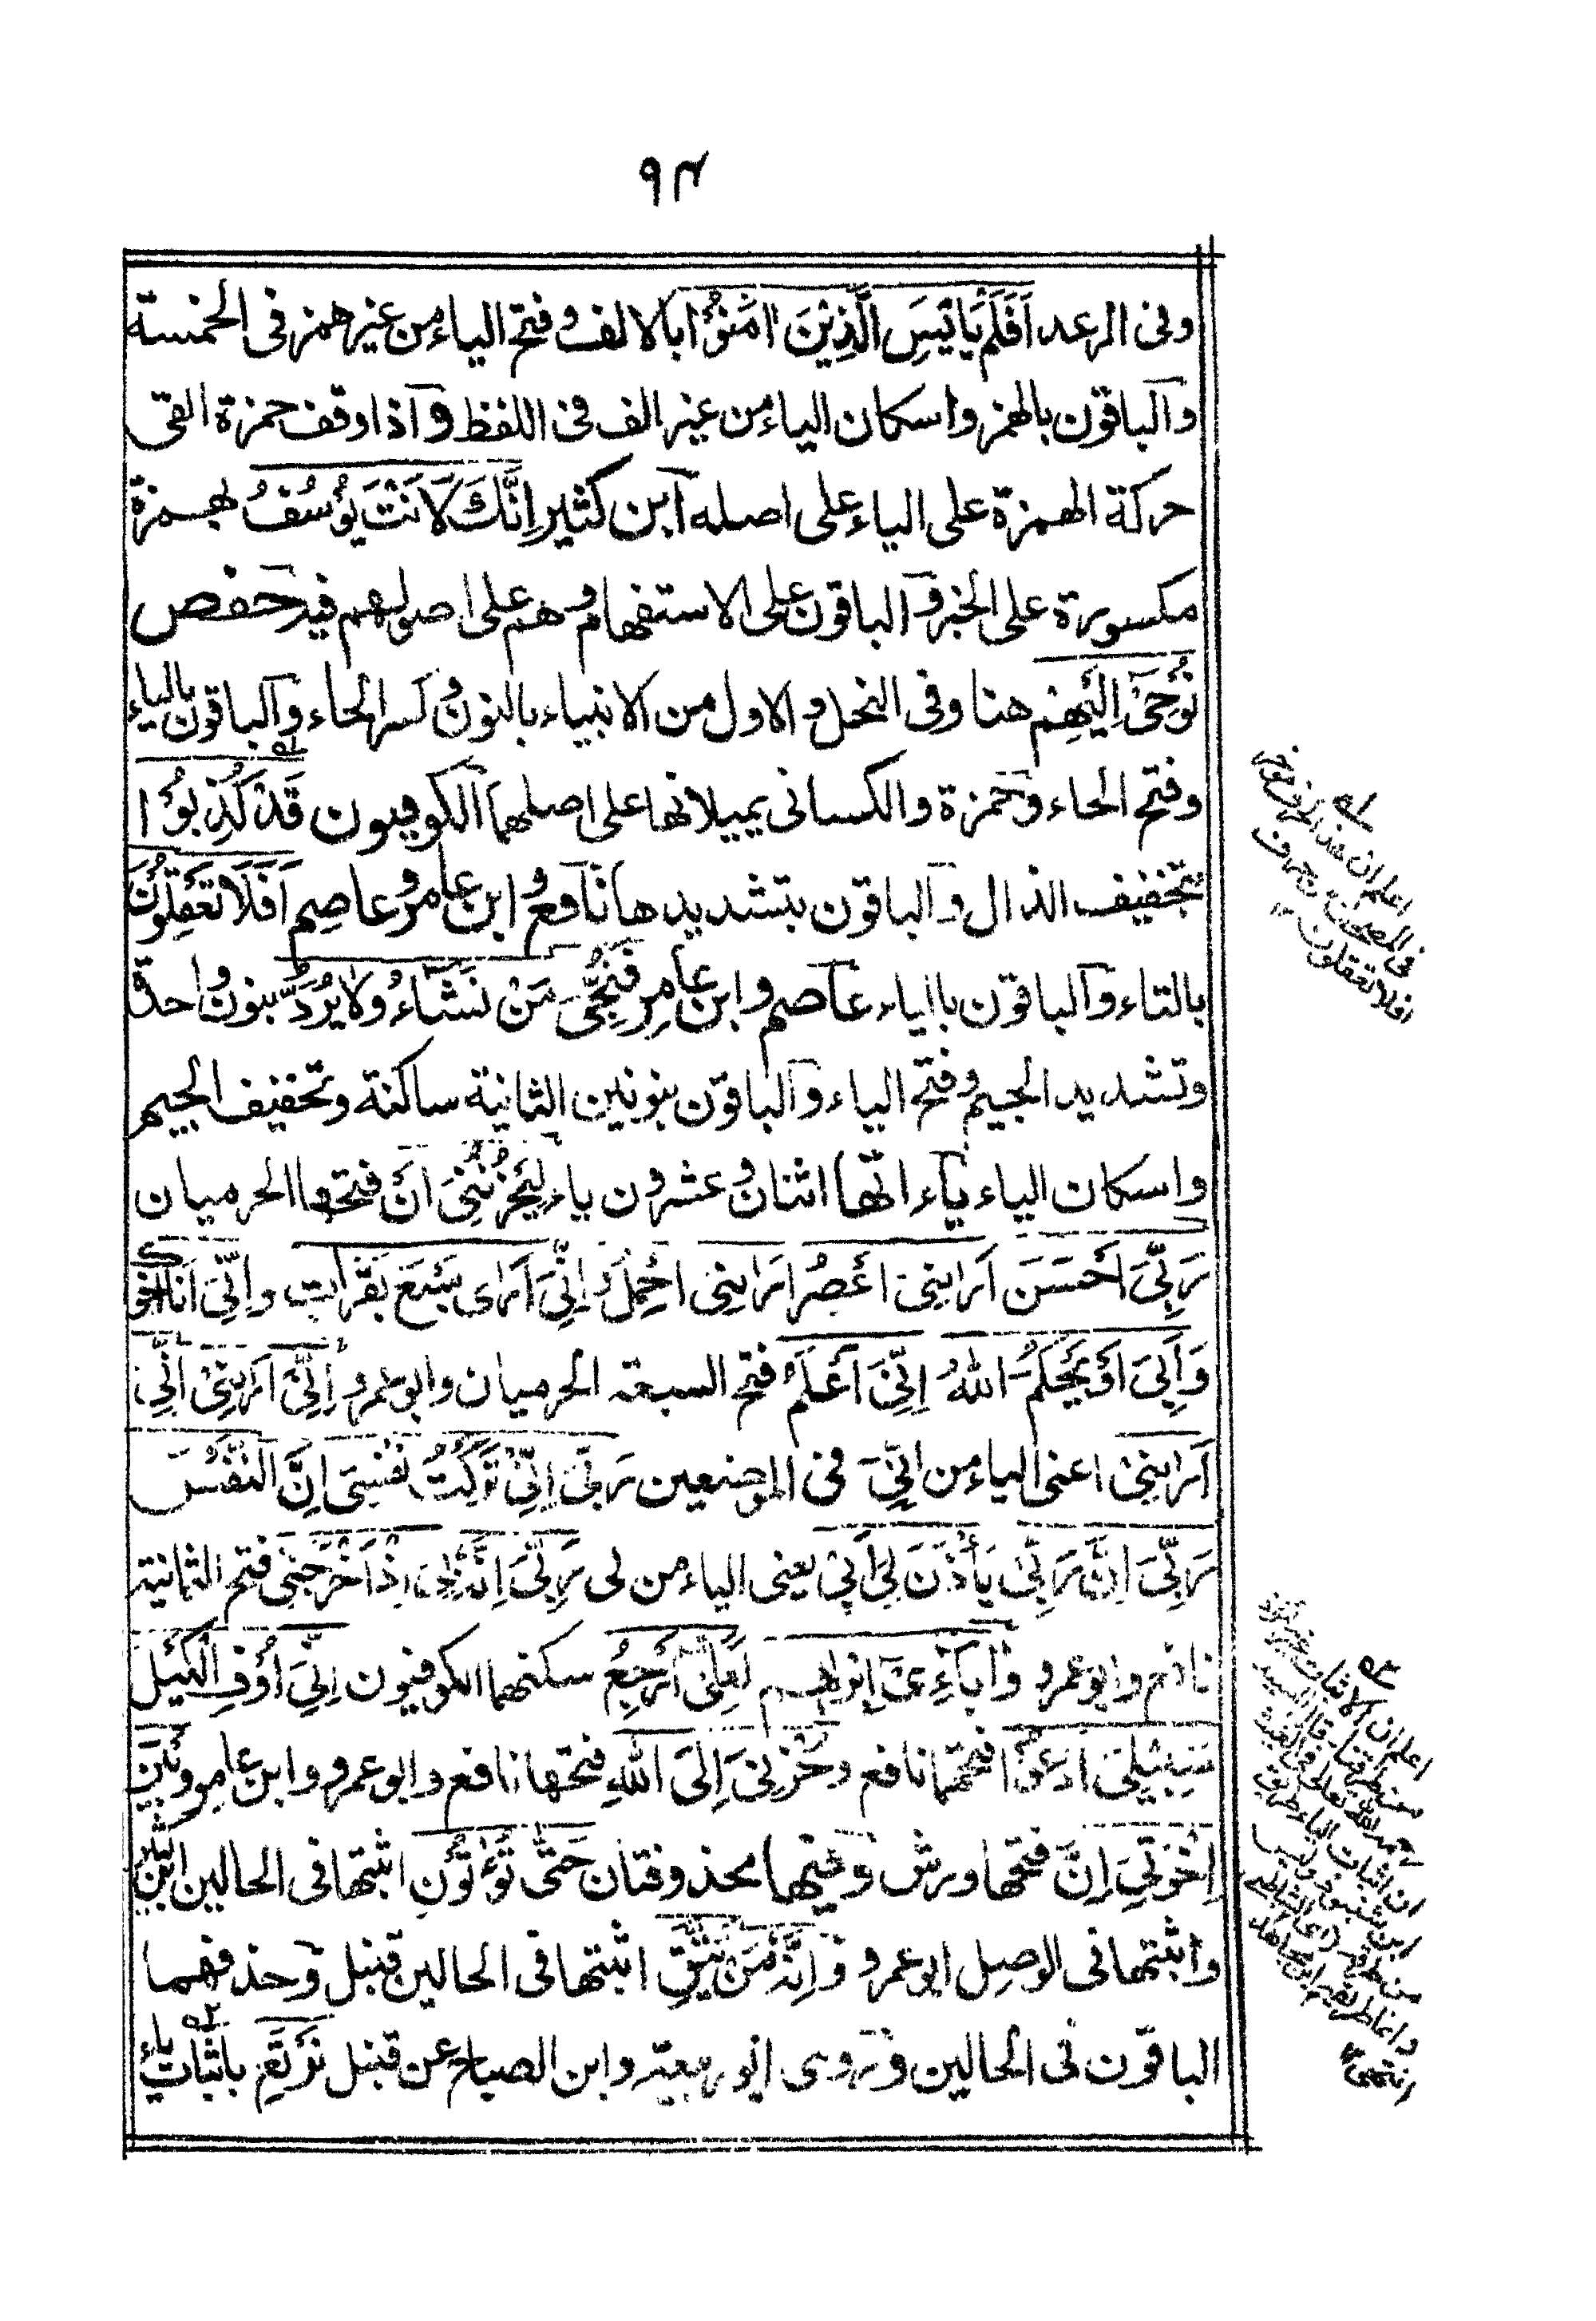 ٩٤
وفى الرعد اَفَلَمْ يَايَئسَ الَّذِيْنَ اٰمَنُوْا بالالف وفتح الياء من غير همز فى الخمسة
والباقون بالهمز واسكان الياء من غير الف فى اللفظ واذا وقف حمزة القى
حركة الهمزة على الياء على اصله ابن كثير اِنَّكَ لَاَنْتَ يُوْسُفُ بهمزة
مكسورة على الخبر والباقون على الاستفهام وهم على اصولهم فيه حفص
نُوْحِىْ اِلَيْهِمْ هنا وفى النحل والاول من الانبياء بالنون وكسر الحاء والباقون بالياء
وفتح الحاء وحمزة والكسائى يميلانها على اصلهما الكوفيون قَدْ كُذِبُوْا
بتخفيف الذال والباقون بتشديدها نافع وابن عامر وعاصم اَفَلَا تَعْقِلُوْنَ
بالتاء والباقون بالياء عاصم وابن عامر فَنُجِّىَ مَنْ نَشَاءُ ولا يُرَدُّ بنون واحدة
وتشديد الجيم وفتح الياء والباقون بنونين الثانية ساكنة وتخفيف الجيم
واسكان الياء ياءاتها اثنان وعشرون ياء لَيَحْزُنُنِىْ اَنْ فتحها الحرميان
رَبِّىْ اَحْسَنَ اَرَانِىْ اَعْصِرُ اَرَانِىْ اَحْمِلُ واِنِّىْ اَرٰى سَبْعَ بَقَرَاتٍ واِنِّىْ اَنَا اَخُوْكَ
وَاَبِىْ اَوْ يَحْكُمَ اللّٰهُ اِنِّىْ اَعْلَمُ فتح السبعة الحرميان وابو عمرو اِنِّىْ اَرَانِىْ اِنِّىْ
اَرَانِىْ اعنى الياء من اِنِّىْ فى الموضعين رَبِّىْ اِنِّىْ تَرَكْتُ نَفْسِىْ اِنَّ النَّفْسَ
رَبِّىْ اِنَّ رَبِّىْ يَأْذَنَ لِىْ اَبِىْ يعنى الياء من لى رَبِّىْ اِنَّهٗ بِىْ اِذْ اَخْرَجَنِىْ فتح الثمانية
نافع وابو عمرو وَاٰبَاءِىْ اِبْرَاهِيم لَعَلِّىْ اَرْجِعُ سكنهما الكوفيون اِنِّىْ اُوْفِ الْكَيْلَ
سَبِيْلِىْ اَدْعُوْا فتحهما نافع وحُزْنِىْ اِلَى اللّٰهِ فتحها نافع وابو عمرو وابن عامر وبَيْنَ
اِخْوَتِىْ اِنَّ فتحها ورش وفيها محذوفتان حَتّٰى تُؤْتُوْنِ اثبتها فى الحالين ابن كثير
واثبتها فى الوصل ابو عمرو واِنَّهٗ مَنْ يَّتَّقِ اثبتها فى الحالين قنبل وحذفهما
الباقون فى الحالين وروى ابو ربيعة وابن الصباح عن قنبل نَرْتَعِ باثبات ياء
اعلم ان هذا الحرف وقع
افلا تعقلون
انتهى